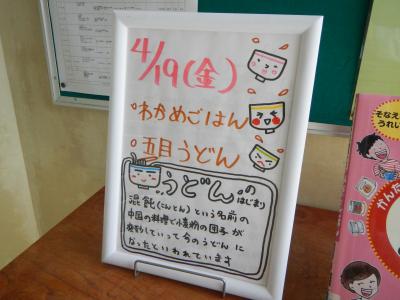 4/19(金)
・わかめごはん
・五目うどん
うどんのはじまり
混飩(こんとん)という名前の
中国の料理で小麦粉の団子が
発展していって今のうどんに
なったといわれています
そなえ
うれし
かんた